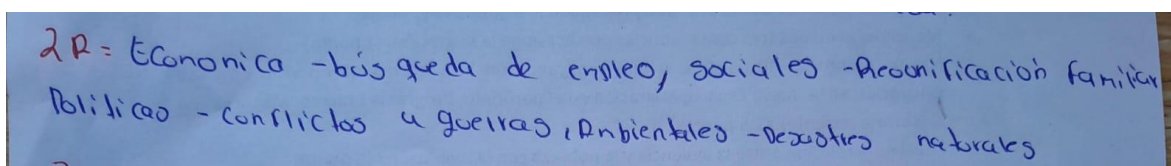 2R= Economica -búsqueda de enpleo, sociales -Reounificación familiar
Politicao - conflictos u guerras, Anbientales -Desastres naturales